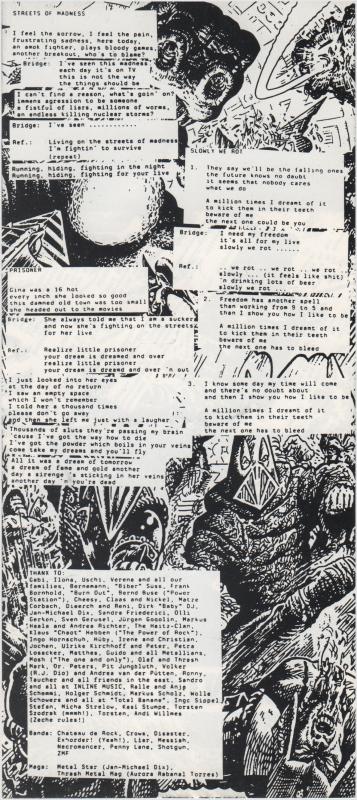 STREETS OF MADNESS
I feel the sorrow, I feel the pain,
frustrating sadness, here today,
an amok fighter, plays bloody games
another outbreak, who's to blame?
Bridge: I've seen this madness
each day it's on TV
this is not the way
the things should be
I can't find a reason, what's goin' on?
immens agression to be someone
a fistful of liers, millions of worms,
an endless killing nuclear storms?
Bridge: I've seen ............
Ref.: Living on the streets of madness
I'm fightin' to survive
(repeat)
Running, hiding, fighting in the night
Running, hiding, fighting for your live
SLOWLY WE ROT
1. They say we'll be the falling ones
the future knows no doubt
it seems that nobody cares
what we do
A million times I dreamt of it
to kick them in their teeth
beware of me
the next one could be you
Bridge: I need my freedom
it's all for my live
slowly we rot ......
Ref.: .. we rot .. we rot .. we rot
slowly ... (it feels like shit)
'n drinking lots of beer
slowly we rot ..
2. Freedom has another spell
than working from 9 to 5 and
than I show you how I like to be
A million times I dreamt of it
to kick them in their teeth
beware of me
the next one has to bleed
3. I know some day my time will come
and there's no doubt about
and then I show you how I like to be
A million times I dreamt of it
to kick them in their teeth
beware of me
the next one has to bleed
PRISONER
Gina was a 16 hot
every inch she looked so good
this damned old town was too small
she headed out to the movies
Bridge: She always told me that I am a sucker
and now she's fighting on the streets
for her live
Ref.: Realize little prisoner
your dream is dreamed and over
realize little prisoner
your dream is dreamed and over 'n out
I just looked into her eyes
at the day of no return
I saw an empty space
which I won't remember
I told her a thousand times
please don't go away
and then she left me just with a laughter
Thousands of sluts they're passing my brain
'cause I've got the way how to die
I've got the powder which boils in your veins
come take my dreams and you'll fly
All it was a dream of tomorrow
a dream of fame and gold another
day a sirenge 's sticking in her veins
another day 'n you're dead
THANX TO:
Gabi, Ilona, Uschi, Verena and all our
families, Bernemann, "Biber" Süss, Frank
Bornhold, "Burn Out", Bernd Buse ("Power
Station"), Cheesy, Claas and Nickel, Maize
Corbach, Dieerch and Reni, Dirk "Baby" DJ,
Jan-Michael Dix, Sandra Friederici, Olli
Gerken, Sven Gerusel, Jürgen Gogolin, Markus
Haala and Andrea Richter, The Hasir-Clan,
Klaus "Chaot" Hebben ("The Power of Rock"),
Ingo Hornschuh, Hüby, Irene and Christian,
Jochen, Ulrike Kirchhoff and Peter, Petra
Losacker, Matthes, Guido and all Metallians,
Mosh ("The one and only"), Olaf and Thrash
Mark, Dr. Peters, Pit Jungbluth, Volker
(R.J. Dio) and Andrea van der Pütten, Ronny,
Taucher and all friends in the east, Sandro
and all at INLINE MUSIC, Ralle and Anjp
Schammi, Holger Schmidt, Markus Scholz, Wolle
Schowers and all at "Total Banane", Ingo Sippel
Stefan, Micha Strelow, Kasi Stumpe, Torsten
Szodrak (mmmh!), Torsten, Andi Willmes
(Zeche rules!)
Bands: Chateau de Rock, Crows, Disaster,
Exhorder! (Yeah!), Liar, Messiah,
Necromancer, Penny Lane, Shotgun,
ZMF
Mags: Metal Star (Jan-Michael Dix),
Thrash Metal Mag (Aurora Rabanal Torres)